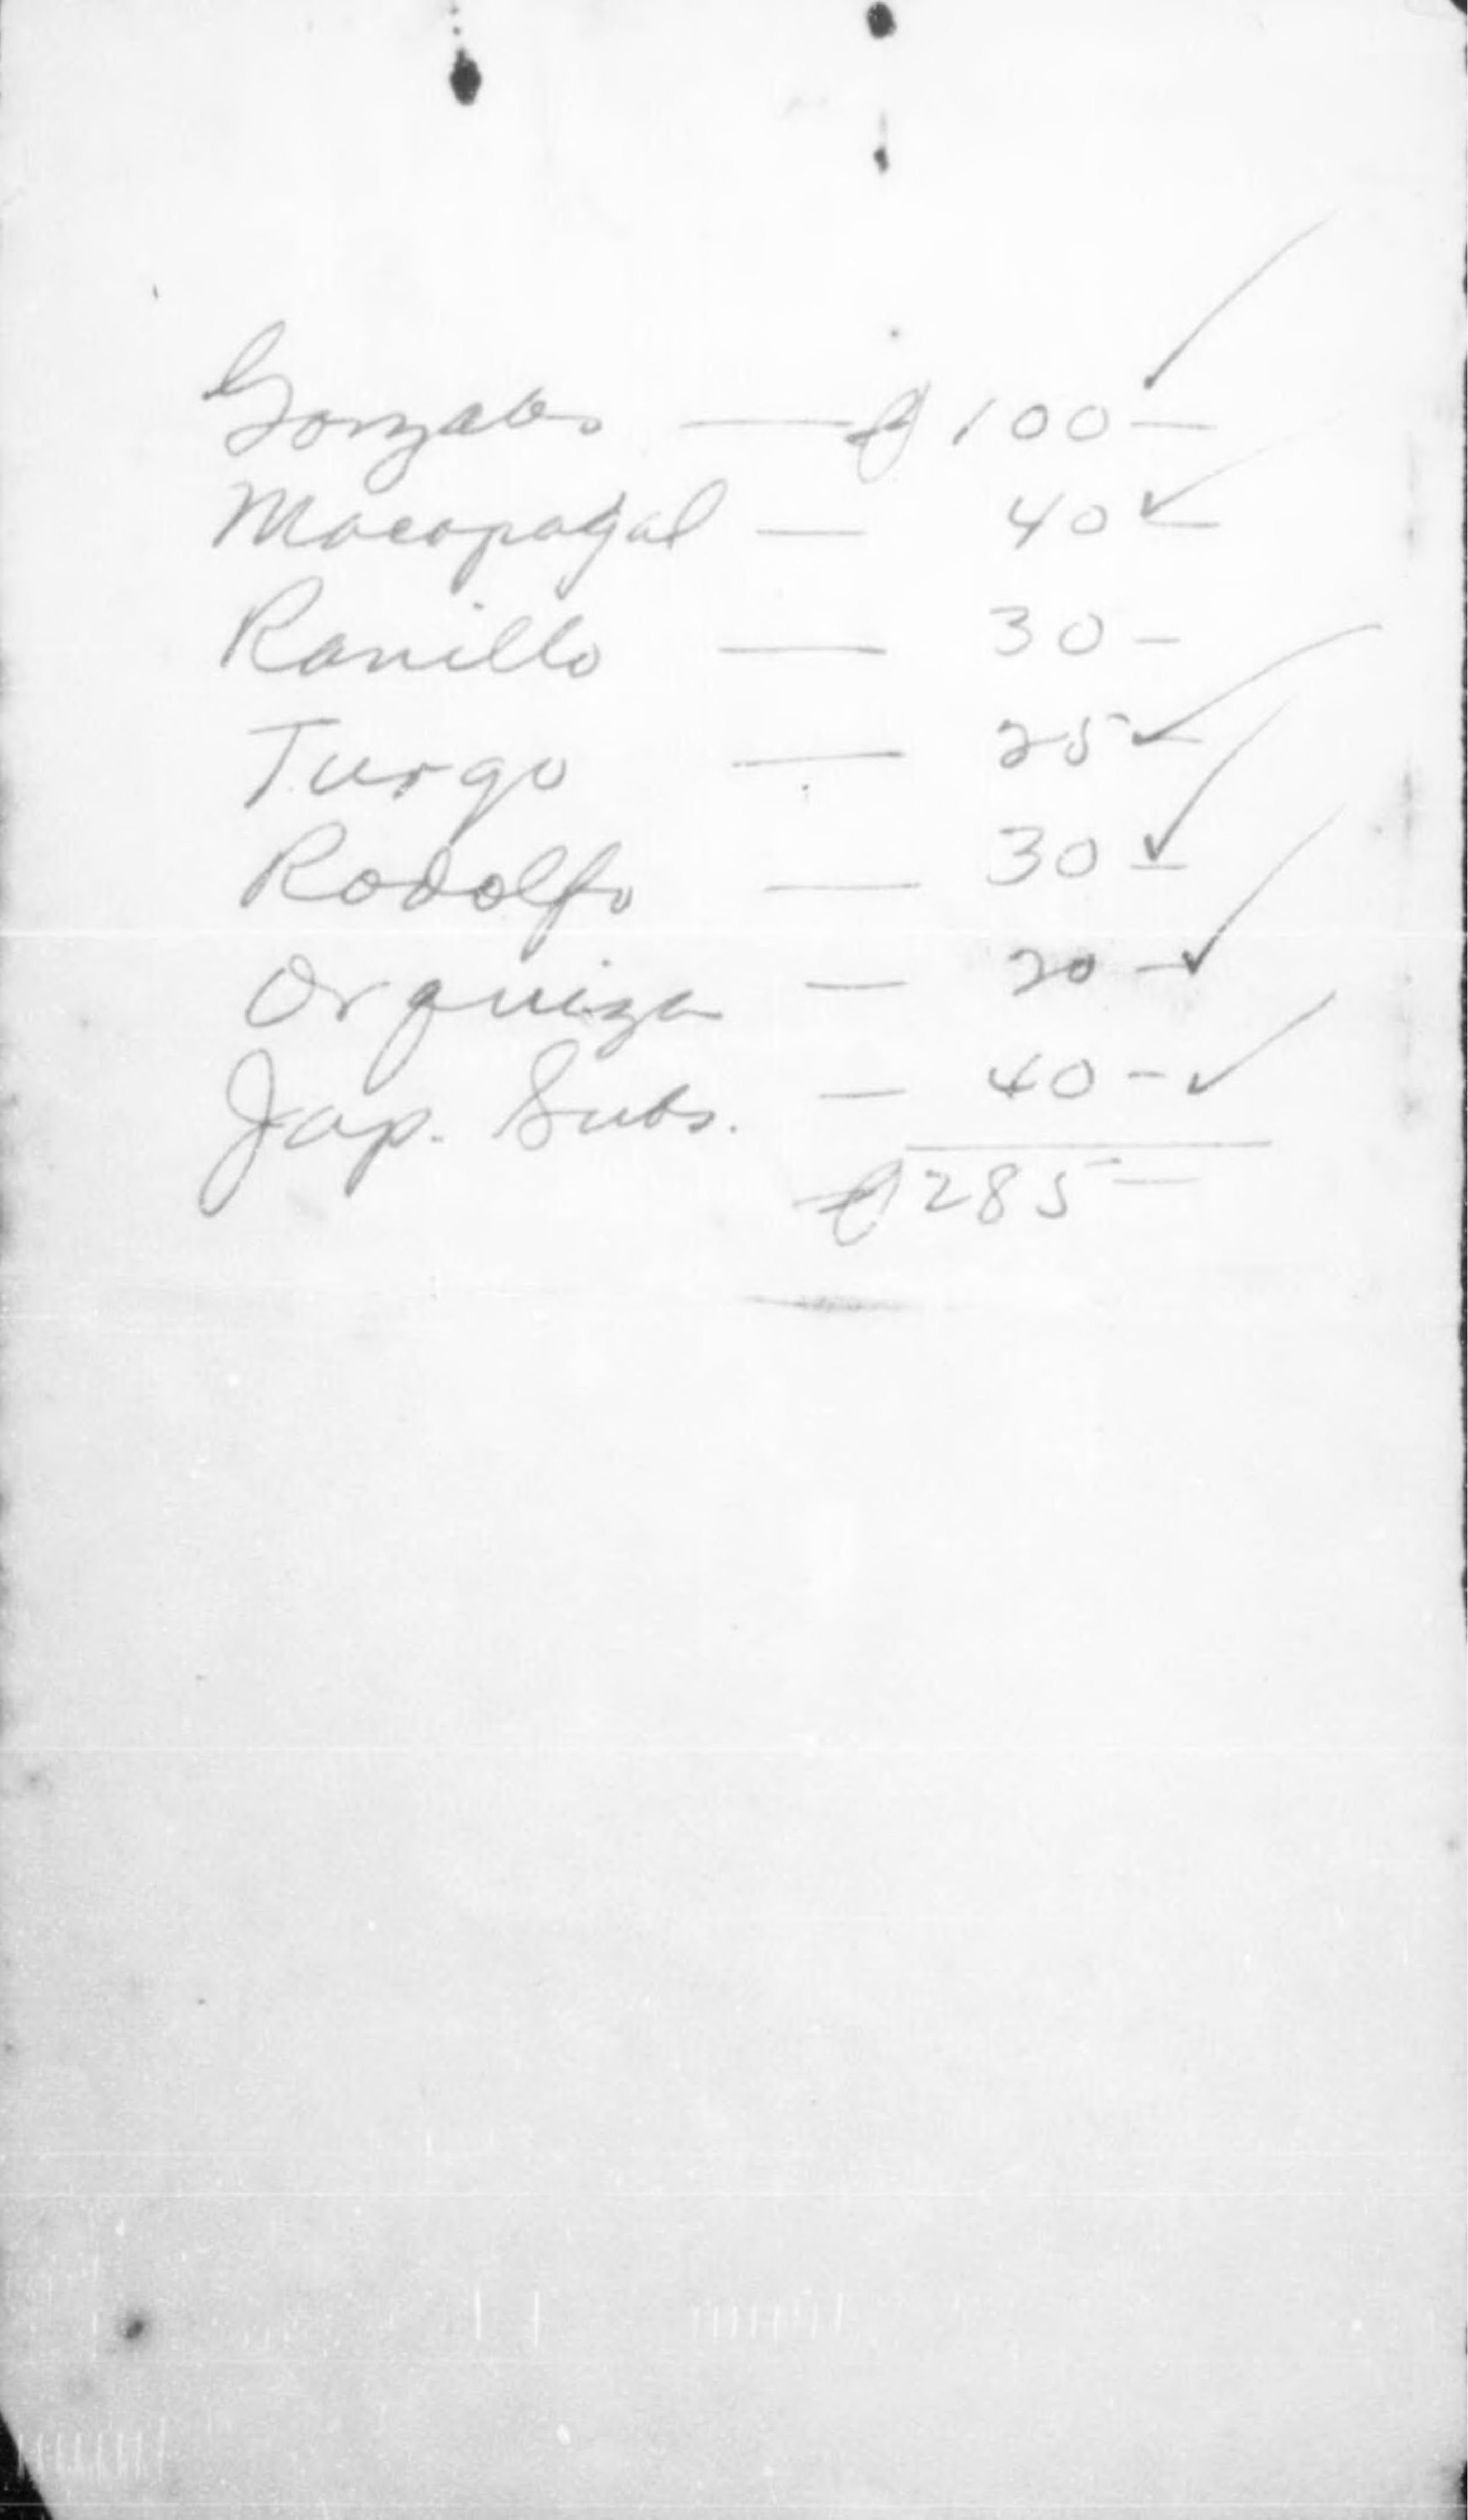 Gonzales — ₱ 100 — ✓
Macapagal — 40 — ✓
Ranillo — 30 —
Turgo — 25 — ✓
Rodolfo — 30 — ✓
Orquiza — 20 — ✓
Jap. Subs. — 40 — ✓
₱ 285 —